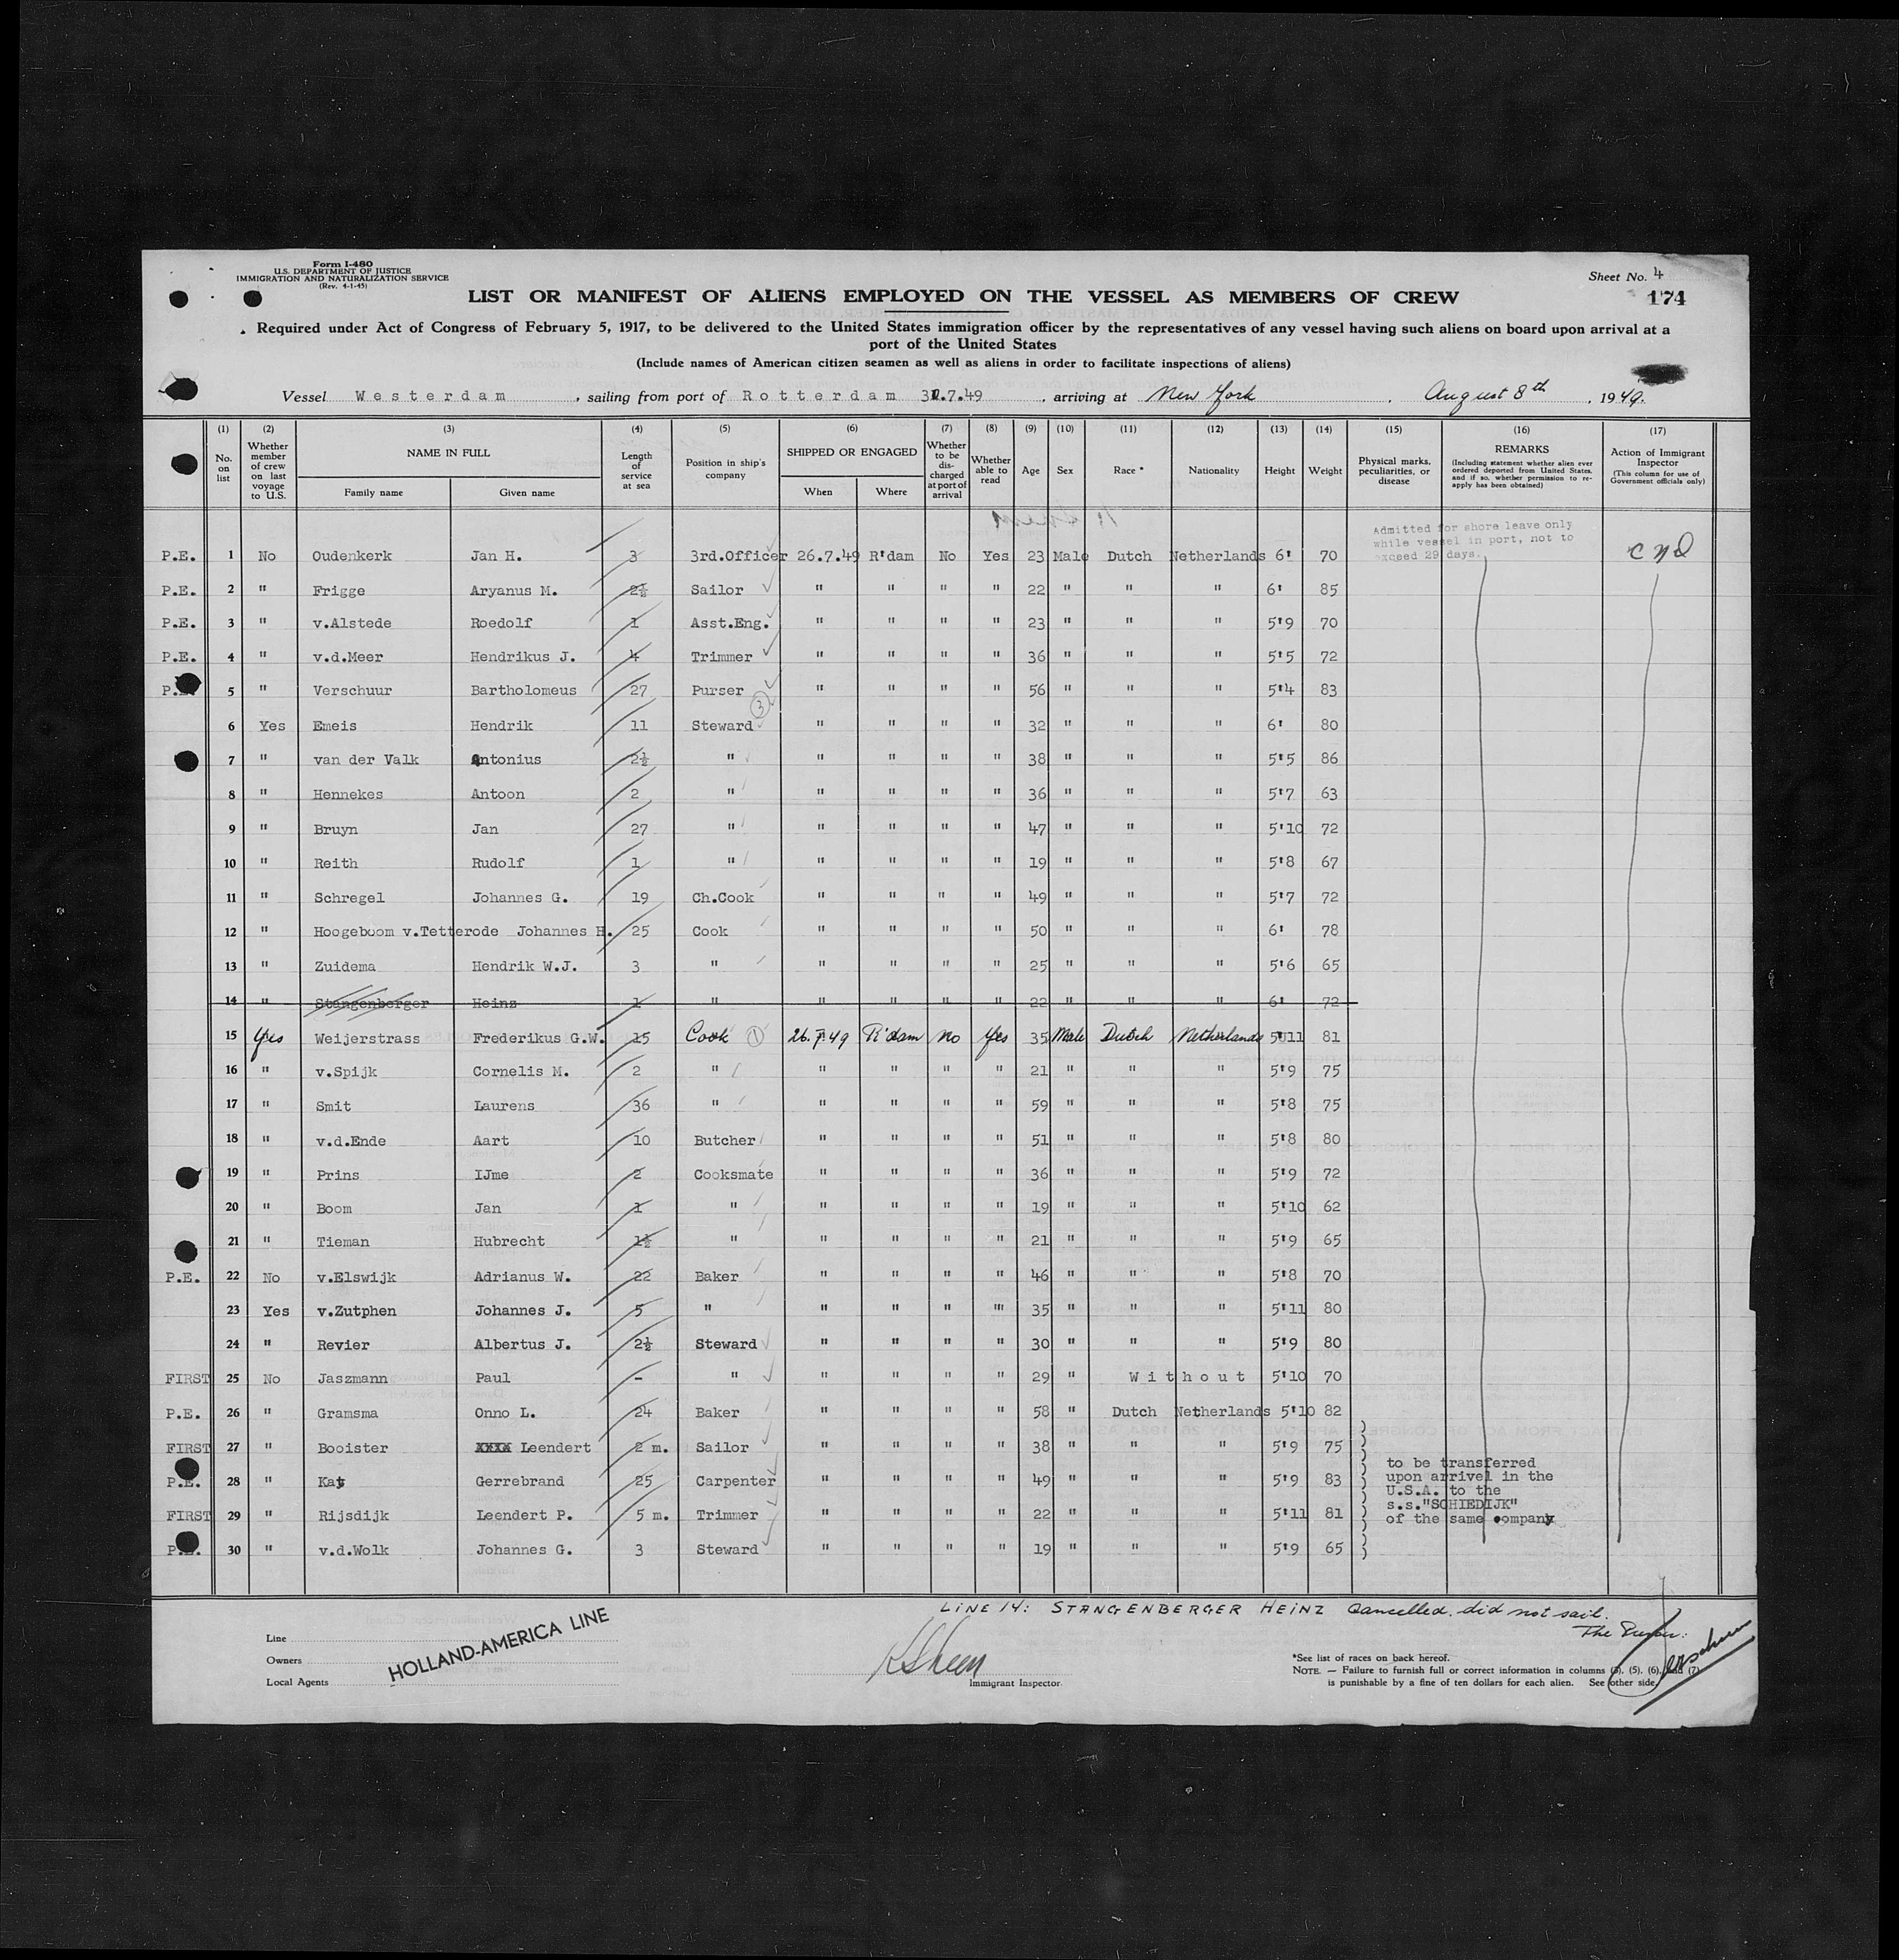 Form I-480
U.S. DEPARTMENT OF JUSTICE
IMMIGRATION AND NATURALIZATION SERVICE
(Rev. 4-1-45)
Sheet No. 4
174
LIST OR MANIFEST OF ALIENS EMPLOYED ON THE VESSEL AS MEMBERS OF CREW
Required under Act of Congress of February 5, 1917, to be delivered to the United States immigration officer by the representatives of any vessel having such aliens on board upon arrival at a
port of the United States
(Include names of American citizen seamen as well as aliens in order to facilitate inspections of aliens)
Vessel Westerdam, sailing from port of Rotterdam .7.49, arriving at New York, August 8th, 1949.
(1) (2) (3) (4) (5) (6) (7) (8) (9) (10) (11) (12) (13) (14) (15) (16) (17)
No. on list
Whether member of crew on last voyage to U.S.
NAME IN FULL
Family name
Given name
Length of service at sea
Position in ship's company
SHIPPED OR ENGAGED
When
Where
Whether to be discharged at port of arrival
Whether able to read
Age
Sex
Race *
Nationality
Height
Weight
Physical marks, peculiarities, or disease
REMARKS
(Including statement whether alien ever ordered deported from United States, and if so, whether permission to re-apply has been obtained)
Action of Immigrant Inspector
(This column for use of Government officials only)
Admitted for shore leave only
while vessel in port, not to
exceed 29 days.
P.E. 1 No Oudenkerk Jan H. 3 3rd.Officer 26.7.49 R'dam No Yes 23 Male Dutch Netherlands 6' 70
P.E. 2 " Frigge Aryanus M. 2½ Sailor " " " " 22 " " " 6' 85
P.E. 3 " v.Alstede Roedolf 1 Asst.Eng. " " " " 23 " " " 5'9 70
P.E. 4 " v.d.Meer Hendrikus J. 4 Trimmer " " " " 36 " " " 5'5 72
P.E. 5 " Verschuur Bartholomeus 27 Purser " " " " 56 " " " 5'4 83
6 Yes Emeis Hendrik 11 Steward 3 " " " " 32 " " " 6' 80
7 " van der Valk Antonius 2½ " " " " " 38 " " " 5'5 86
8 " Hennekes Antoon 2 " " " " " 36 " " " 5'7 63
9 " Bruyn Jan 27 " " " " " 47 " " " 5'10 72
10 " Reith Rudolf 1 " " " " " 19 " " " 5'8 67
11 " Schregel Johannes G. 19 Ch.Cook " " " " 49 " " " 5'7 72
12 " Hoogeboom v.Tetterode Johannes H. 25 Cook " " " " 50 " " " 6' 78
13 " Zuidema Hendrik W.J. 3 " " " " " 25 " " " 5'6 65
14 " Stangenberger Heinz 1 " " " " " 22 " " " 6' 72
15 Yes Weijerstrass Frederikus G.W. 15 Cook 1 26.7.49 R'dam No Yes 35 Male Dutch Netherlands 5'11 81
16 " v.Spijk Cornelis M. 2 " " " " " 21 " " " 5'9 75
17 " Smit Laurens 36 " " " " " 59 " " " 5'8 75
18 " v.d.Ende Aart 10 Butcher " " " " 51 " " " 5'8 80
19 " Prins IJme 2 Cooksmate " " " " 36 " " " 5'9 72
20 " Boom Jan 1 " " " " " 19 " " " 5'10 62
21 " Tieman Hubrecht 1½ " " " " " 21 " " " 5'9 65
P.E. 22 No v.Elswijk Adrianus W. 22 Baker " " " " 46 " " " 5'8 70
23 Yes v.Zutphen Johannes J. 5 " " " " " 35 " " " 5'11 80
24 " Revier Albertus J. 2½ Steward " " " " 30 " " " 5'9 80
FIRST 25 No Jaszmann Paul - " " " " " 29 " Without 5'10 70
P.E. 26 " Gramsma Onno L. 24 Baker " " " " 58 " Dutch Netherlands 5'10 82
FIRST 27 " Booister XXXX Leendert 2 m. Sailor " " " " 38 " " " 5'9 75
P.E. 28 " Kat Gerrebrand 25 Carpenter " " " " 49 " " " 5'9 83
FIRST 29 " Rijsdijk Leendert P. 5 m. Trimmer " " " " 22 " " " 5'11 81
P.E. 30 " v.d.Wolk Johannes G. 3 Steward " " " " 19 " " " 5'9 65
to be transferred
upon arrivel in the
U.S.A. to the
s.s."SCHIEDIJK"
of the same company
LINE 14: STANGENBERGER HEINZ Cancelled, did not sail.
The Purser:
Line
Owners
Local Agents
HOLLAND-AMERICA LINE
Immigrant Inspector
*See list of races on back hereof.
NOTE. — Failure to furnish full or correct information in columns (3), (5), (6), and (7)
is punishable by a fine of ten dollars for each alien. See other side.